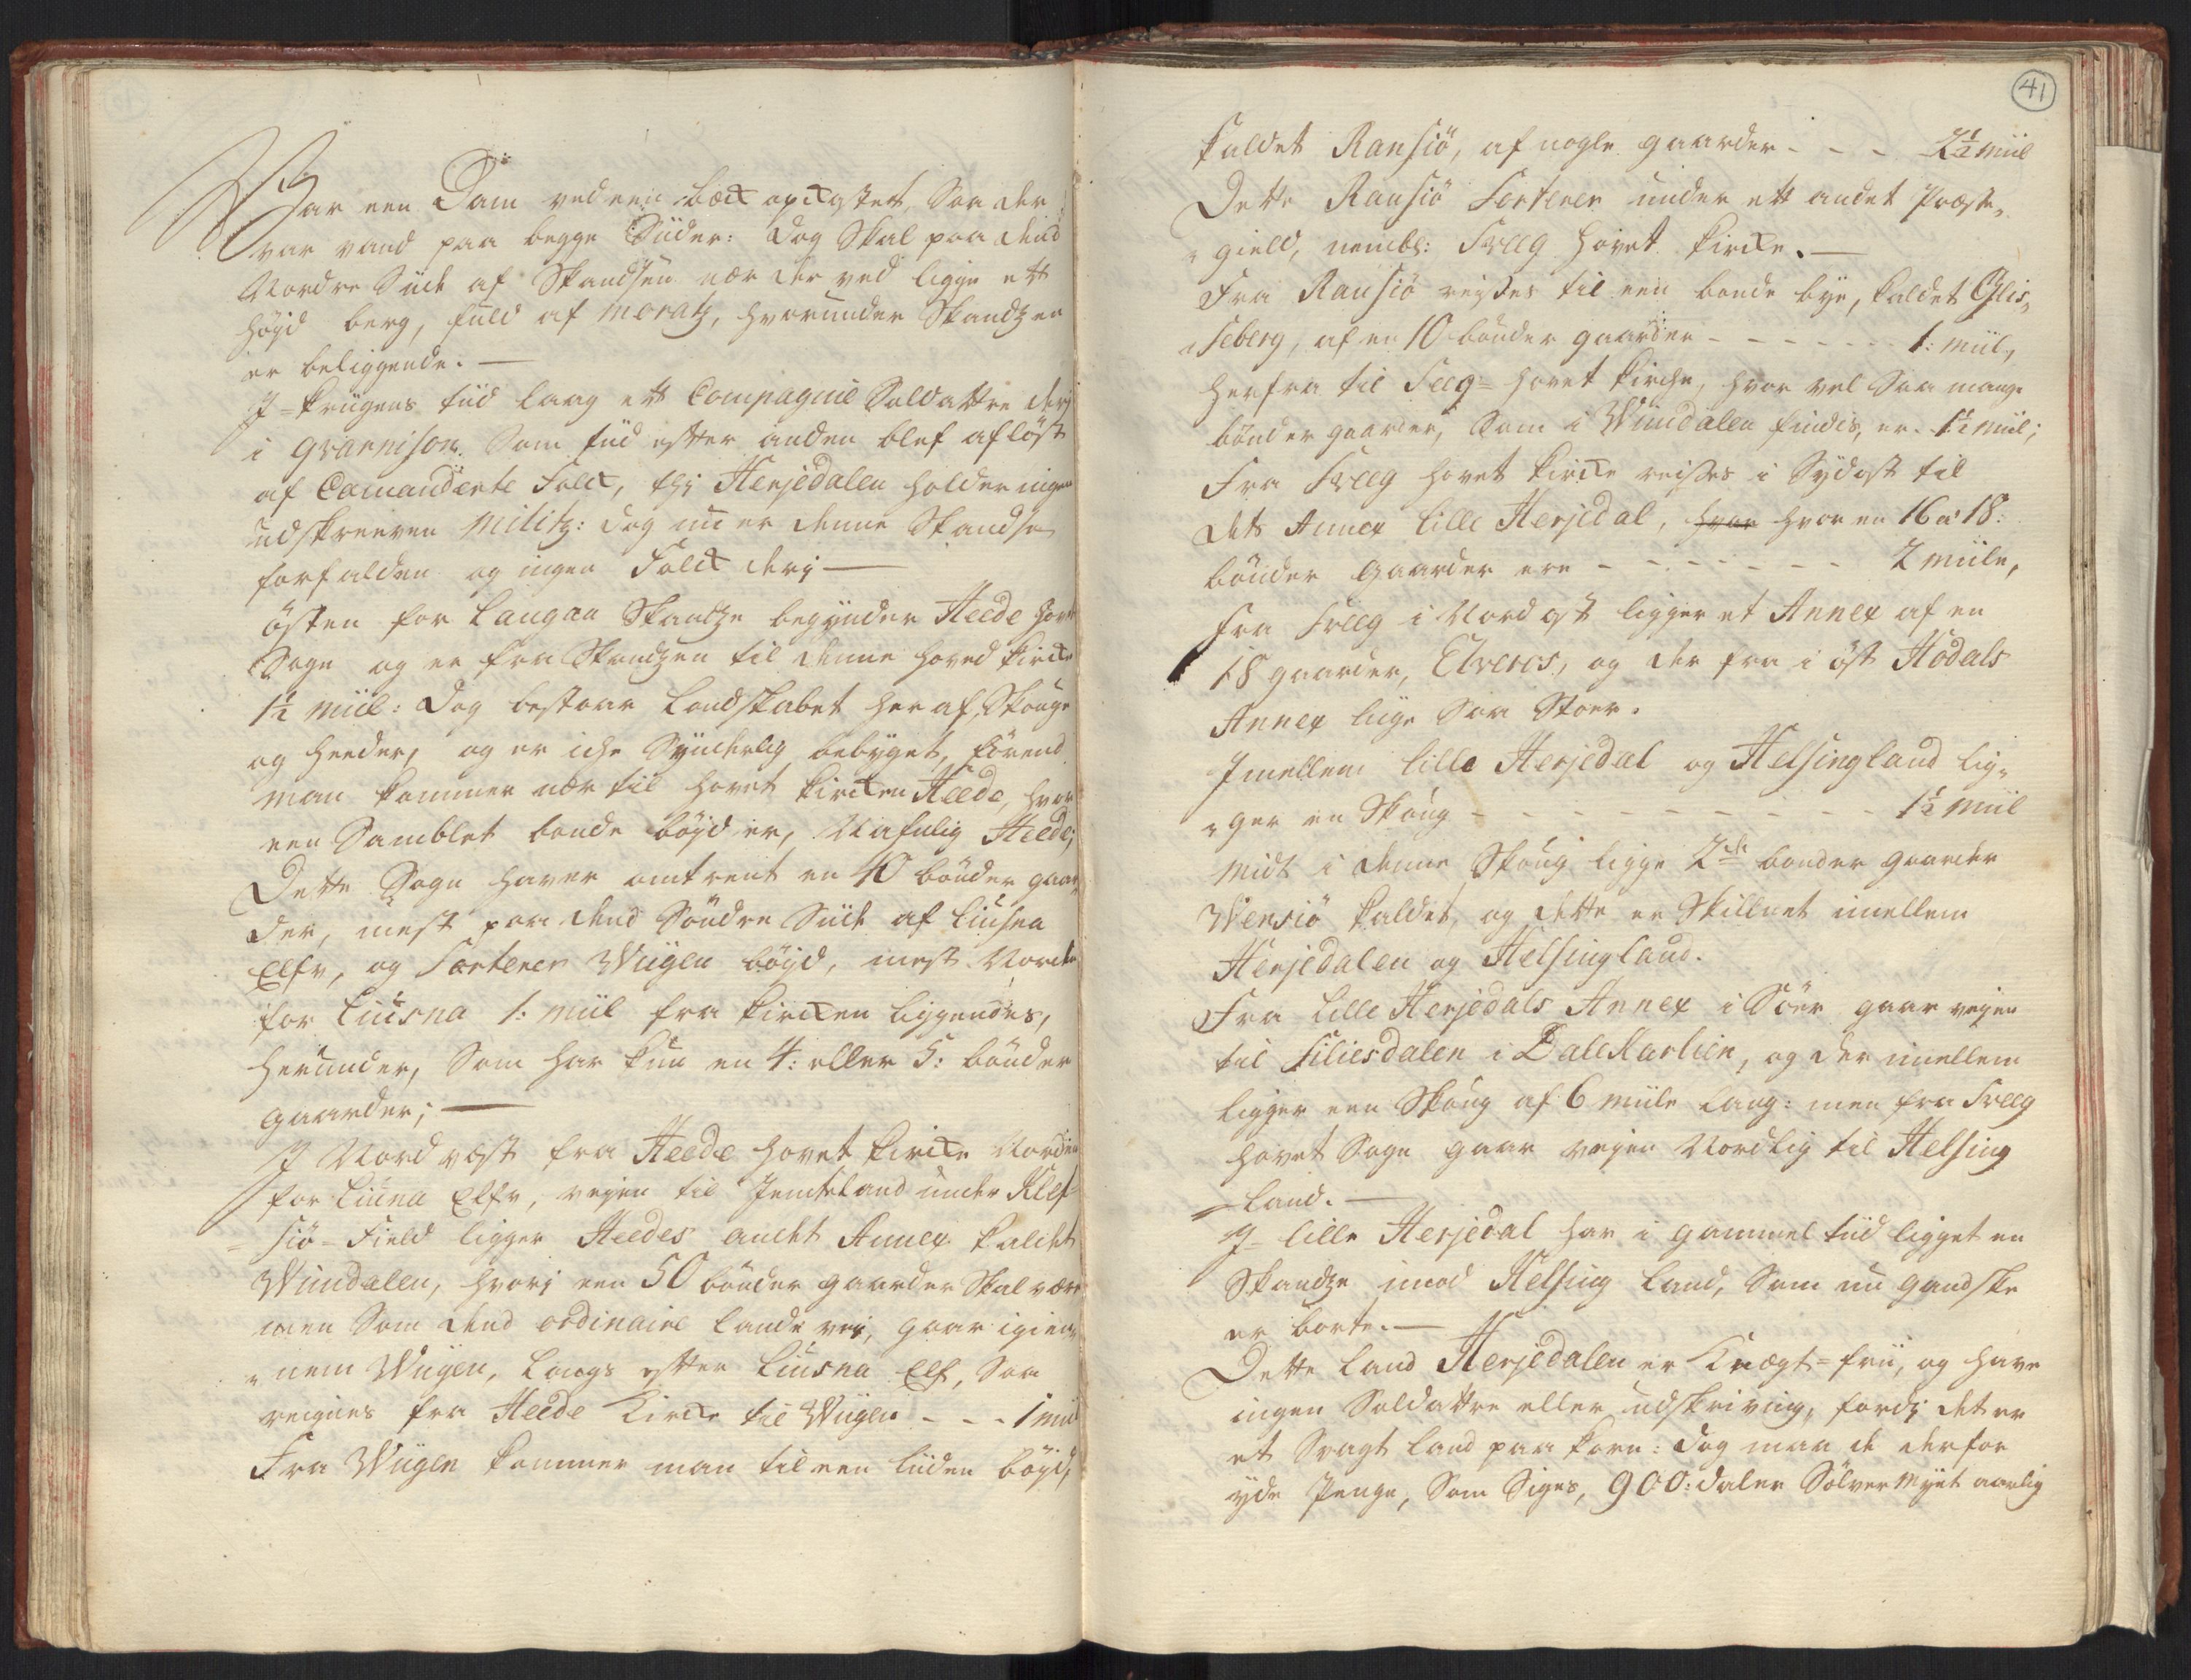 War een Dam ved een bæck opkastet, Saa der
var vand paa begge Siider: dog Skal paa dend
Nordre Siide af Skandsen nær der ved ligge ett
høyd berg, fuld af moratz, hvorunder Skandtzen
er beliggende. —
I Kriigens tiid laag ett Compagnie Soldatter derj
i gvarnison, Som tiid efter anden blef afløst
af Comanderte Folck, thj Herjedalen holder ingen
udskreeven militz: dog nu er denne Skandse
forfalden og ingen Folck derj —
østen for Langaa Skandtze begynder Heede hovet
Sogn og er fra Skandtzen til denne hoved Kircke
1½ miil: dog bestaar Landskabet her af Skouge
og heeder, og er iche Synderlig bebyget, førend
man kommer nær til hovet Kircken Heede, hvor
een Samblet bonde bøyd er, Nafnlig Heede;
Dette Sogn haver omtrent en 40 bønder gaar¬
der, mest paa dend Søndre Siide af Liusna
Elfv, og Sorterer Wiigen bøyd, mest Norden
for Liusna 1: miil fra Kircken liggendes,
herunder, Som har kun en 4: eller 5: bønder
gaarder; —
I Nordvæst fra Heede hovet Kircke Norden
for Liuna Elfv, vejen til Jemteland under Klef¬
= siö-Field ligger Heedes andet Annex kaldet
Wimdalen, hvorj een 50 bønder gaarder Skal være
men Som dend ordinaire lande vej, gaar igien¬
nem Wiigen, langs efter Liusna Elf, Saa
regnes fra Heede Kircke til Wiigen - - - 1 miil
Fra Wiigen kommer man til een liiden bøyd,
41
kaldet Ransiö, af nogle gaarder - - - 2½ miil
Dette Ransiö Sorterer under ett andet Præste¬
gield, nembl: Sveeg hovet Kircke. —
Fra Ransiö reises til een bonde bye, kaldet Glis¬
seberg, af en 10 bønder gaarder - - - - - - 1: miil,
herfra til Sveeg= hovet Kirche, hvor vel Saa mange
bønder gaarder, Som i Wimdalen findes, er - 1½ miil;
Fra Sveeg hovet Kircke reises i Sydost til
dets Annex lille Herjedal, hvor hvor en 16 a: 18:
bønder gaarder ere - - - - - - - 2 miile,
fra Sveeg i Nord ost ligger et Annex af en
18 gaarder, Elveros, og der fra i øst Hodals
Annex liige Saa Stoer.
Imellem lille Herjedal og Helsingland lig¬
ger en Skoug - - - - - - - - - 1½ miil
midt i denne Skoug ligge 2de bonder gaarder
Wensiö kaldet, og dette er Skillnet imellem
Herjedalen og Helsingland.
Fra Lille Herjedals Annex i Söer gaar vejen
til Liliesdalen i Dallkarlien, og der imellem
ligger een Skoug af 6 miile lang: men fra Sveeg
hovet Sogn gaar vejen Nordlig til Helsing
= land. —
I lille Herjedal har i gammel tiid ligget en
Skandtze imod Helsing land, Som nu gandske
er borte. —
Dette land Herjedalen er Knægt=frii, og have
ingen Soldatter eller udskriving, fordj det er
et Svagt land paa korn: dog maa de derfor
yde Penge, Som Siges, 900: daler Sølver Mynt aarlig